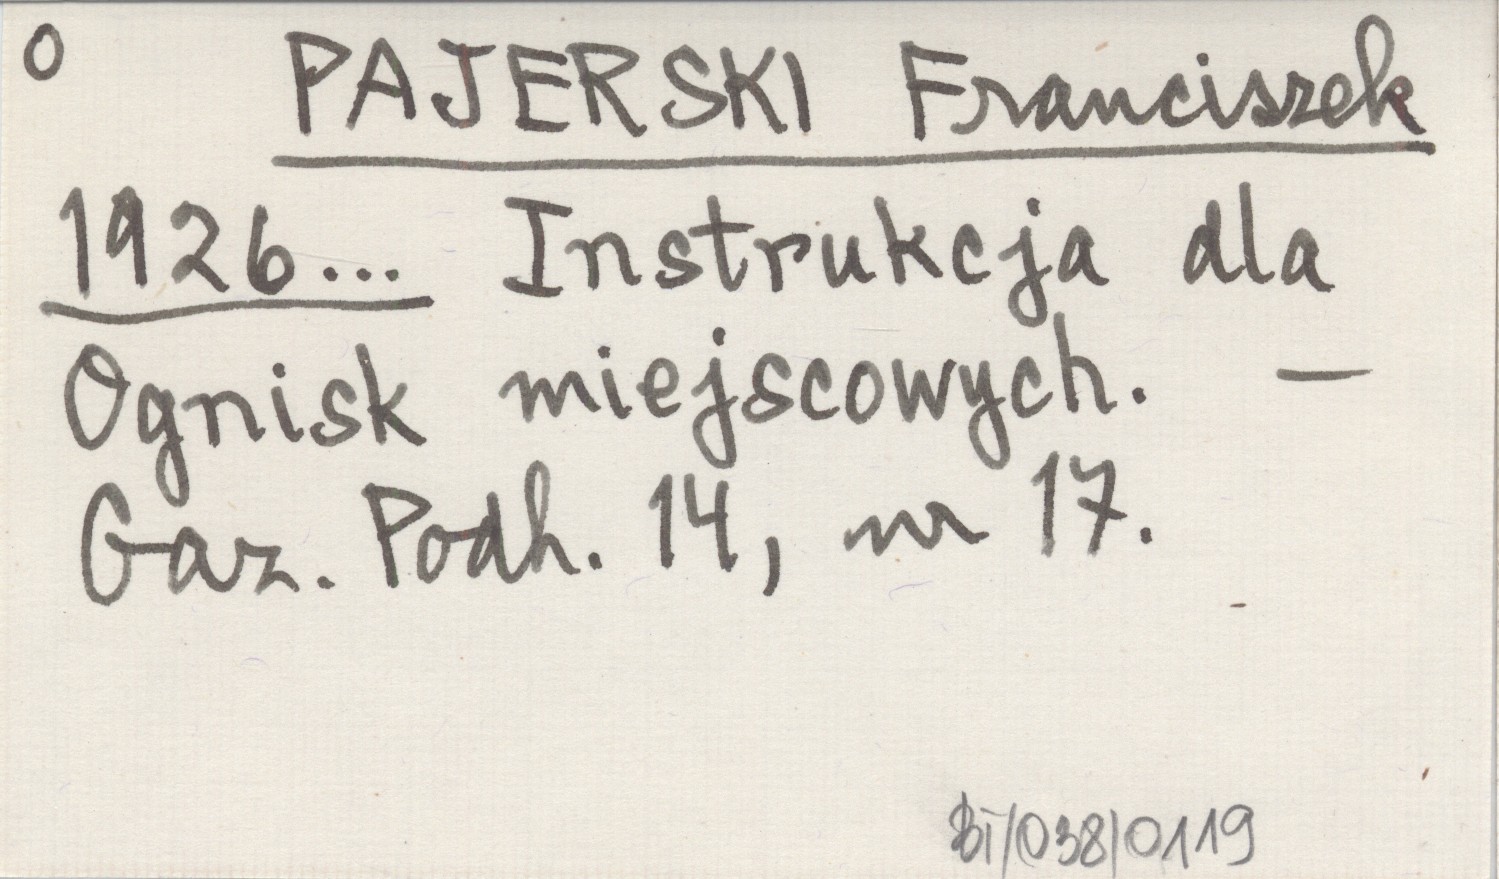 O PAJERSKI Franciszek
1926... Instrukcja dla
Ognisk miejscowych. —
Gaz. Podh. 14, nr 17.
BT/038/0119